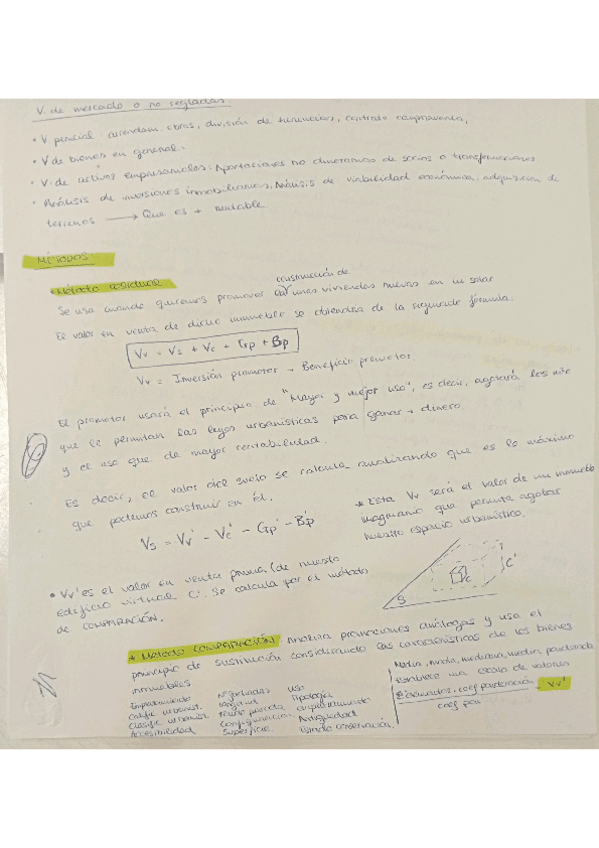 V. de mercado o no regladas.
• V pericial: arrendam. obras, división de herencias, contrato compraventa,
• V de bienes en general.
• V. de activos empresariales: Aportaciones no dinerarias de socios o transformaciones
• Análisis de inversiones inmobiliarias. Análisis de viabilidad económica, adquisición de
terrenos → Que es + rentable.
MÉTODOS
• Método residual
construcción de
Se usa cuando queremos promover unas viviendas nuevas en un solar
El valor en venta de dicho inmueble se obtendría de la siguiente fórmula:
Vv = Vs + Vc + Gp + Bp
Vv = Inversión promotor + Beneficio promotor
El promotor usará el principio de "Mayor y mejor uso", es decir, agotará los m²
que le permitan las leyes urbanísticas para ganar + dinero
y el uso que de mayor rentabilidad.
Es decir, el valor del suelo se calcula analizando que es lo máximo
que podemos construir en él.
Vs = Vv' - Vc' - Gp' - Bp'
* Esta Vv será el valor de un inmueble
imaginario que permita agotar
nuestro espacio urbanístico.
S
C
C'
• Vv' es el valor en venta prima (de nuestro
edificio virtual C'. Se calcula por el método
de COMPARACIÓN.
* Método COMPARACIÓN: analiza promociones análogas y usa el
principio de sustitución considerando las características de los bienes
inmuebles
Emplazamiento
Calific urbanist.
Clasific urbanist
Accesibilidad
longitud
Configuración
Superficie
uso
Tipología
emplazamiento
Antigüedad
Estado conservación.
Media, moda, mediana, media ponderada
Establece una escala de valores
coef ponderación → Vv'
coef